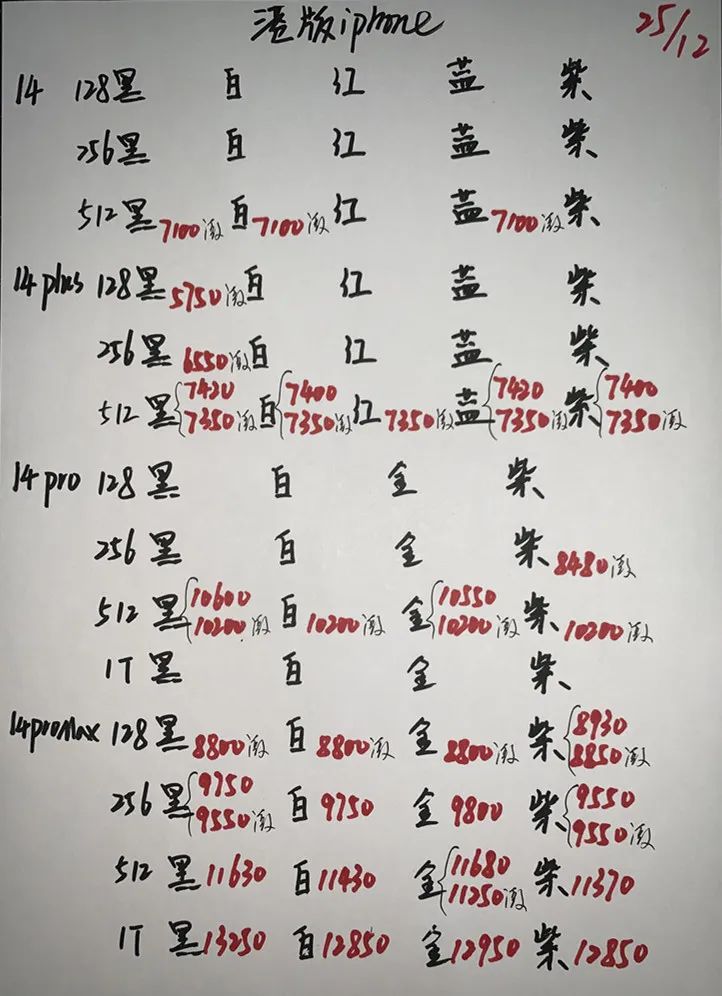 港版iphone 25/12
14 128黑 白 红 蓝 紫
256黑 白 红 蓝 紫
512黑7100激 白7100激 红 蓝7100激 紫
14plus 128黑5750激 白 红 蓝 紫
256黑6550激 白 红 蓝 紫
512黑{7420 7350激 白{7400 7350激 红7350激 蓝{7420 7350激 紫{7400 7350激
14pro 128黑 白 金 紫
256黑 白 金 紫8480激
512黑{10600 10200激 白10200激 金{10550 10200激 紫10200激
1T黑 白 金 紫
14proMax 128黑8800激 白8800激 金8800激 紫{8930 8850激
256黑{9750 9550激 白9750 金9800 紫{9550 9550激
512黑11630 白11430 金{11680 11250激 紫11370
1T黑13250 白12850 金12950 紫12850